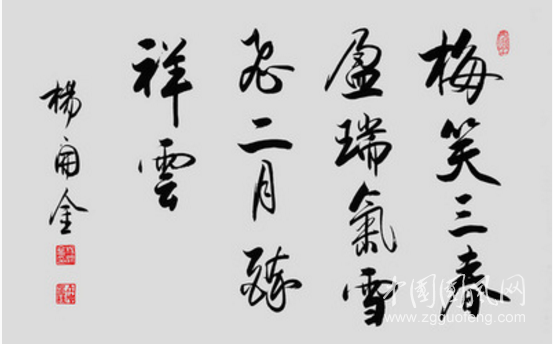 梅笑三春
盈瑞氣雪
飛二月
祥雲
楊 金
中国国风网
www.zgguofeng.com